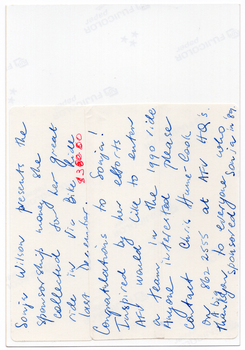 Sonja Wilson presents the
sponsorship money she
collected for her great
ride in Vic Bike Ride
last December. $360.00
Congratulations to Sonja!
Inspired by her efforts
AFV would like to enter
a team in the 1990 ride
Anyone interested please
contact Chris Hume-Cook
on 862 2555 at AFV HQ's.
Thankyou to everyone who
sponsored Sonja in '89.